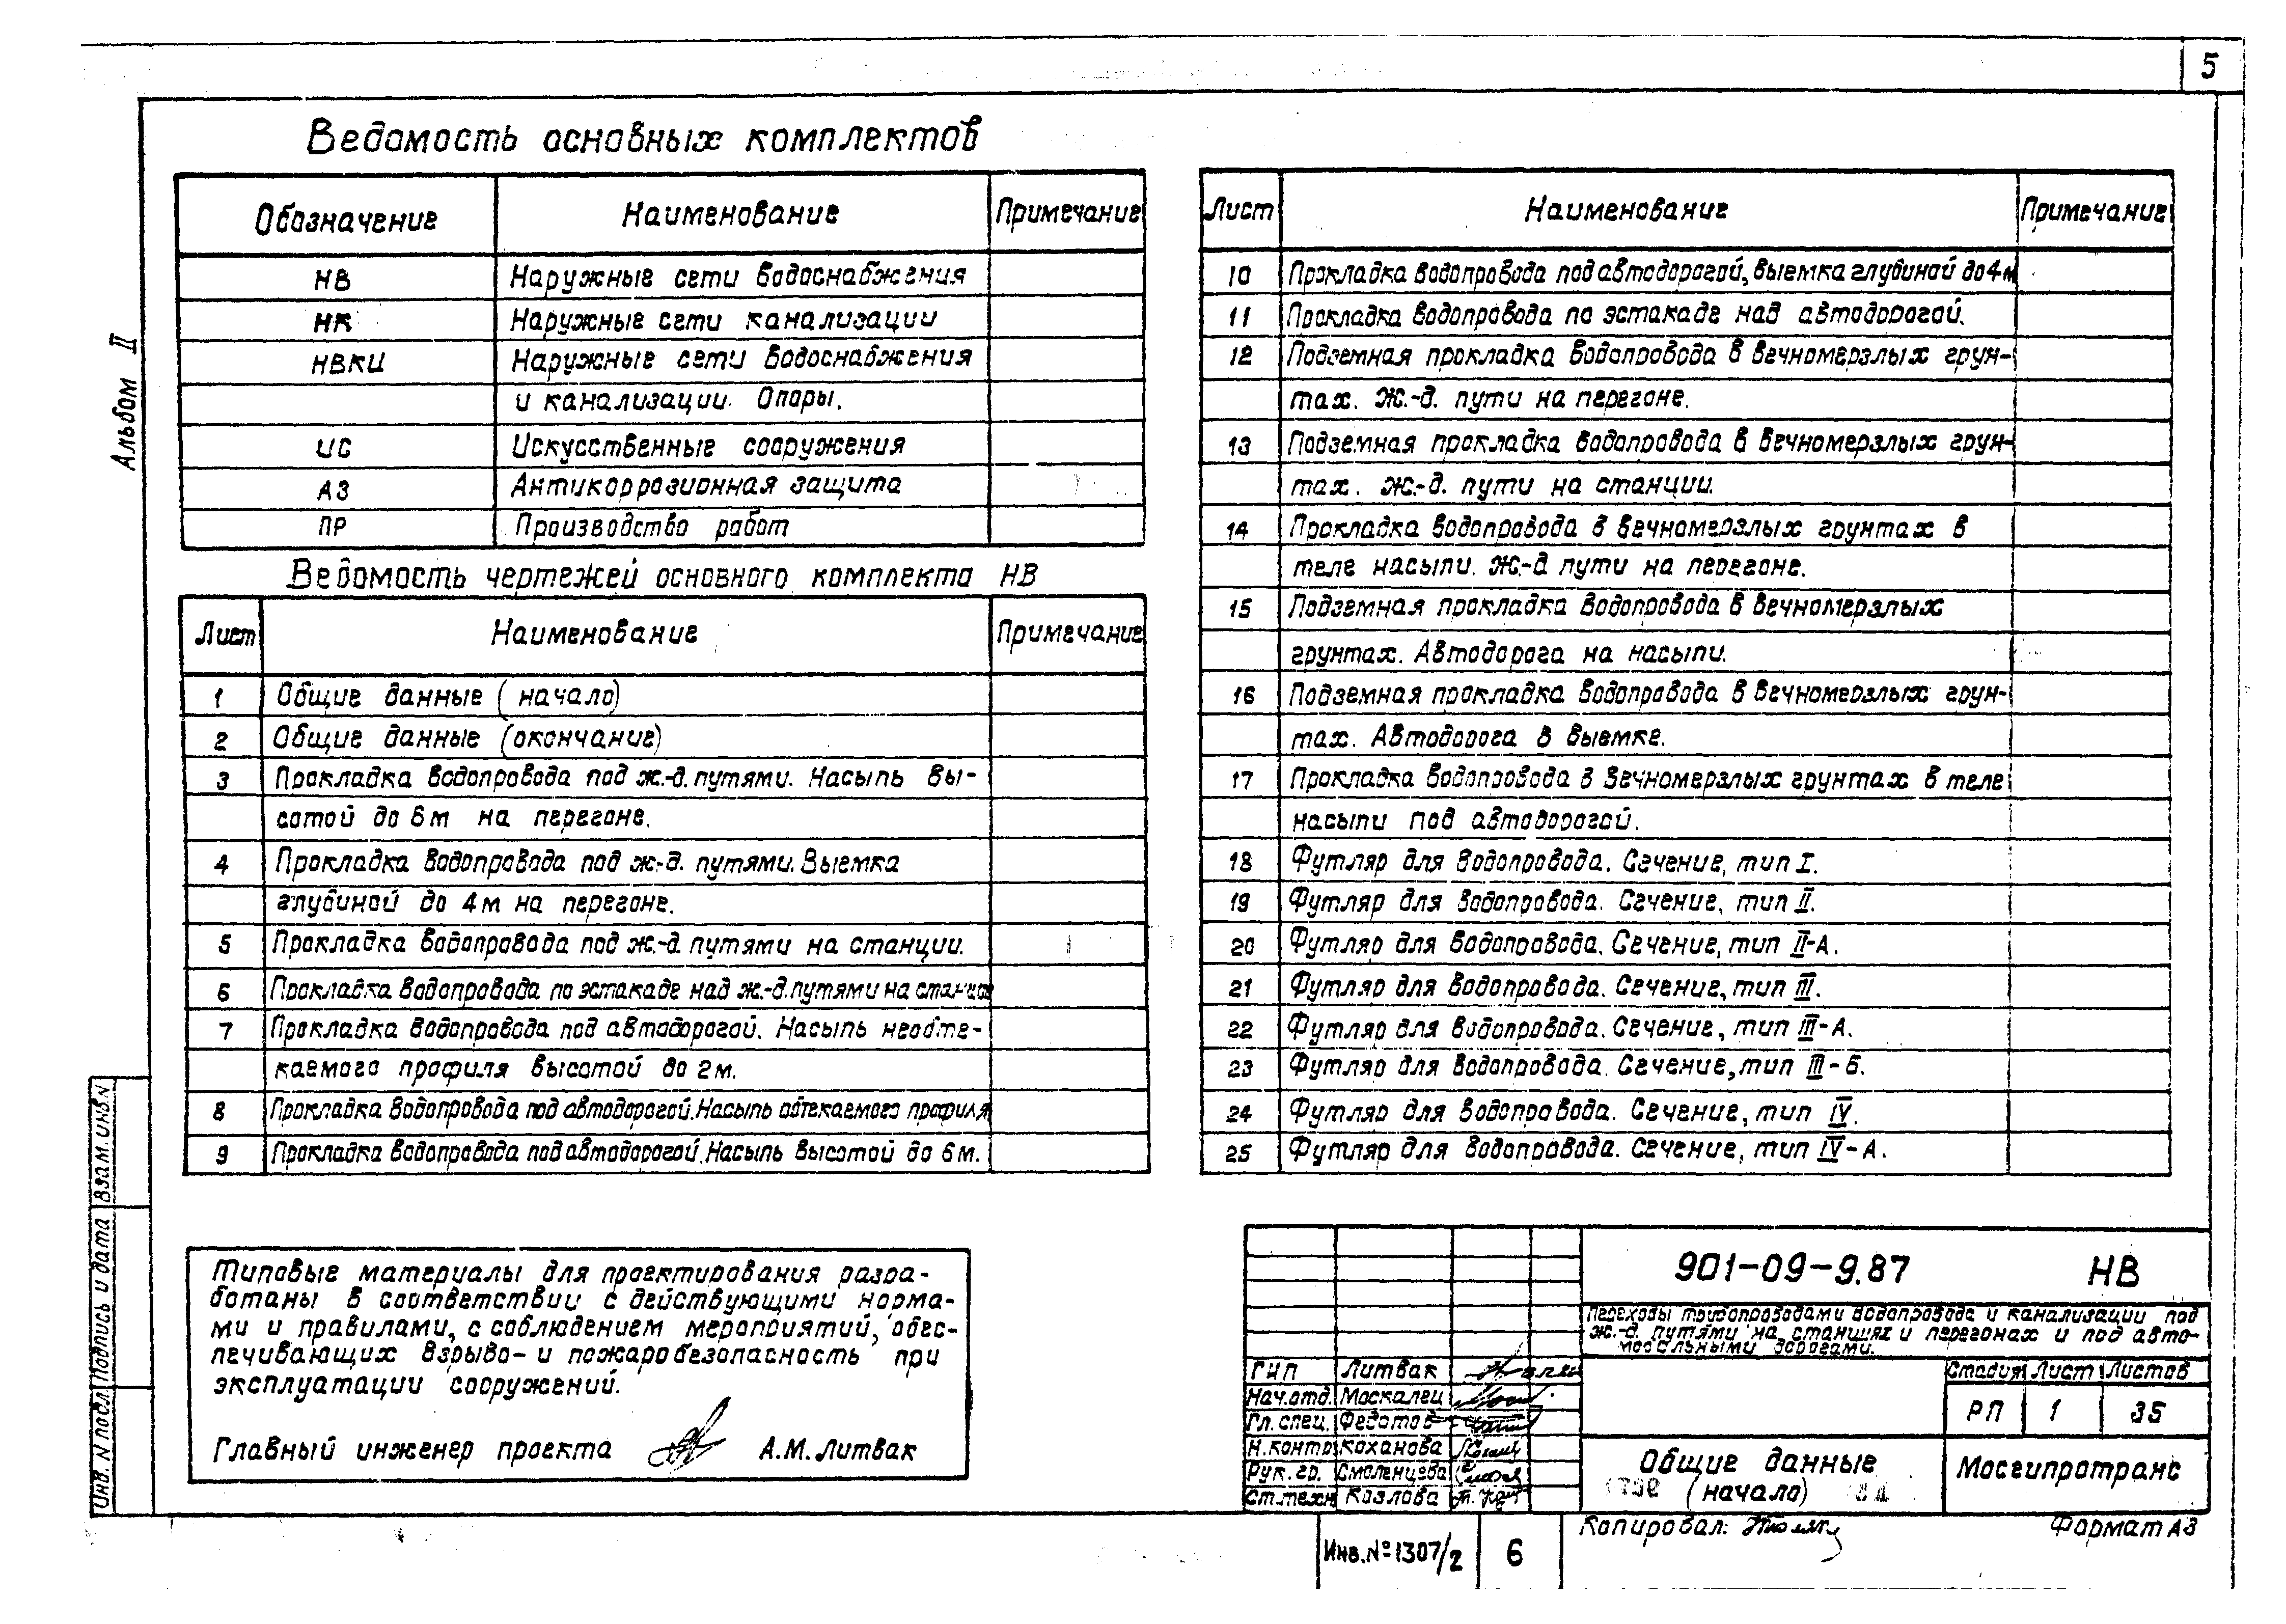 5
Альбом II
Ведомость основных комплектов
Обозначение Наименование Примечание
НВ Наружные сети водоснабжения
НК Наружные сети канализации
НВКИ Наружные сети водоснабжения
и канализации. Опоры.
ИС Искусственные сооружения
АЗ Антикоррозионная защита
ПР Производство работ
Ведомость чертежей основного комплекта НВ
Лист Наименование Примечание
1 Общие данные (начало)
2 Общие данные (окончание)
3 Прокладка водопровода под ж.-д. путями. Насыпь вы-
сотой до 6м на перегоне.
4 Прокладка водопровода под ж.-д. путями. Выемка
глубиной до 4м на перегоне.
5 Прокладка водопровода под ж.-д. путями на станции.
6 Прокладка водопровода по эстакаде над ж.-д. путями на станции
7 Прокладка водопровода под автодорогой. Насыпь необте-
каемого профиля высотой до 2м.
8 Прокладка водопровода под автодорогой. Насыпь обтекаемого профиля
9 Прокладка водопровода под автодорогой. Насыпь высотой до 6м.
Лист Наименование Примечание
10 Прокладка водопровода под автодорогой, выемка глубиной до 4м
11 Прокладка водопровода по эстакаде над автодорогой.
12 Подземная прокладка водопровода в вечномерзлых грун-
тах. Ж.-д. пути на перегоне.
13 Подземная прокладка водопровода в вечномерзлых грун-
тах. Ж.-д. пути на станции.
14 Прокладка водопровода в вечномерзлых грунтах в
теле насыпи. Ж.-д пути на перегоне.
15 Подземная прокладка водопровода в вечномерзлых
грунтах. Автодорога на насыпи.
16 Подземная прокладка водопровода в вечномерзлых грун-
тах. Автодорога в выемке.
17 Прокладка водопровода в вечномерзлых грунтах в теле
насыпи под автодорогой.
18 Футляр для водопровода. Сечение, тип I.
19 Футляр для водопровода. Сечение, тип II.
20 Футляр для водопровода. Сечение, тип II-А.
21 Футляр для водопровода. Сечение, тип III.
22 Футляр для водопровода. Сечение, тип III-А.
23 Футляр для водопровода. Сечение, тип III-Б.
24 Футляр для водопровода. Сечение, тип IV.
25 Футляр для водопровода. Сечение, тип IV-А.
Типовые материалы для проектирования разра-
ботаны в соответствии с действующими норма-
ми и правилами, с соблюдением мероприятий, обес-
печивающих взрыво- и пожаробезопасность при
эксплуатации сооружений.
Главный инженер проекта А.М. Литвак
Инв. N подл. Подпись и дата Взам. инв. N
901-09-9.87 НВ
Переходы трубопроводами водопровода и канализации под
ж.-д. путями на станциях и перегонах и под авто-
мобильными дорогами.
Стадия Лист Листов
РП 1 35
ГИП Литвак
Нач.отд. Москалец
Гл. спец. Федотов
Н.контр Коханова
Рук. гр. Смоленцева
Ст.техн Козлова
Общие данные
(начало)
Мосгипротранс
Копировал: Формат А3
Инв. № 1307/2 6